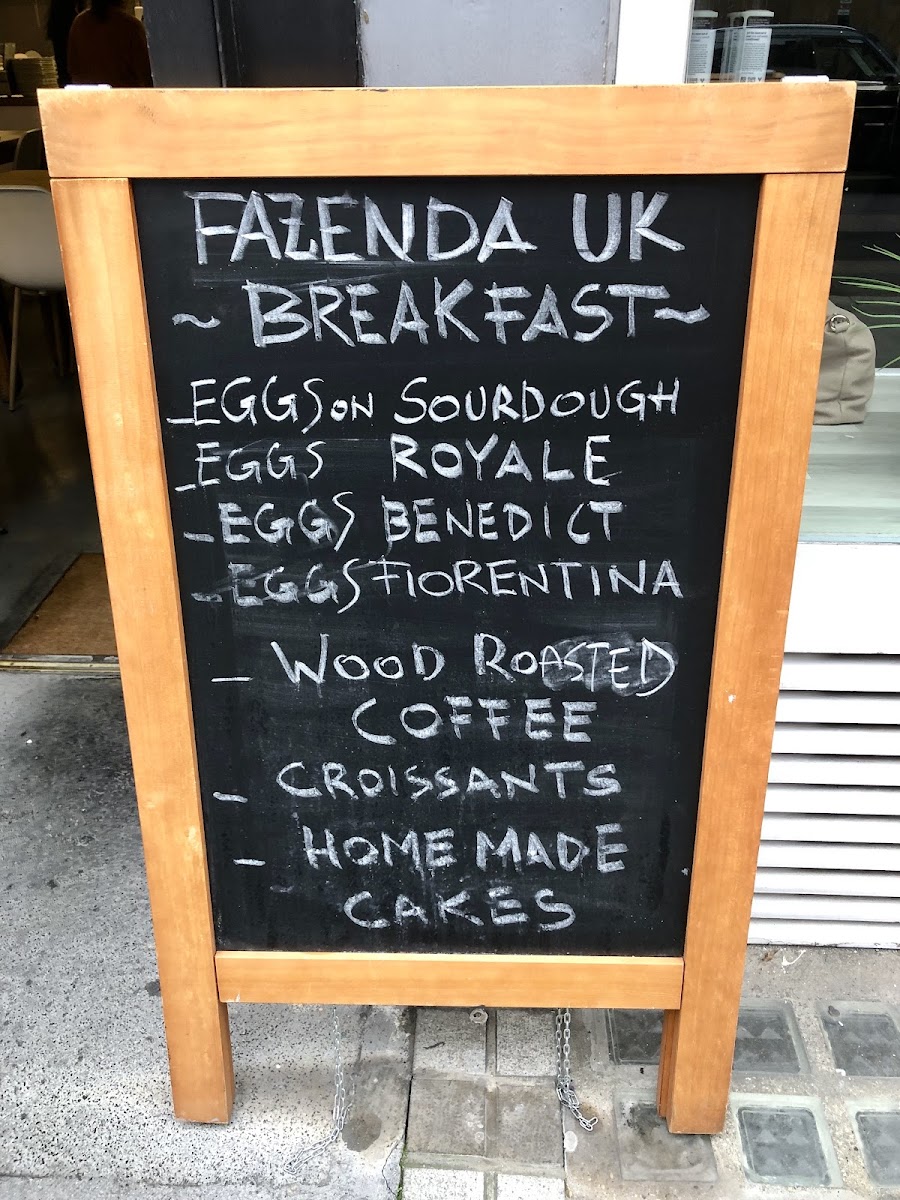 FAZENDA UK
~ BREAKFAST ~
- EGGS ON SOURDOUGH
- EGGS ROYALE
- EGGS BENEDICT
- EGGS FIORENTINA
- WOOD ROASTED
COFFEE
- CROISSANTS
- HOME MADE
CAKES